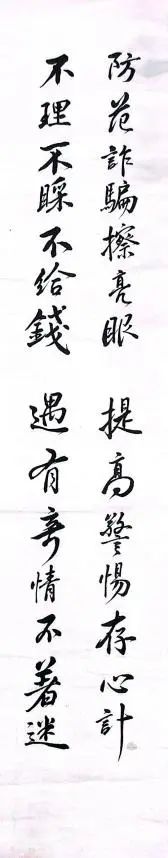 防范诈骗擦亮眼 提高警惕存心計
不理不睬不给錢 遇有奇情不着迷